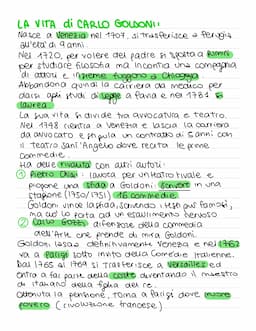 LA VITA di CARLO GOLDONI:
Nasce a Venezia nel 1707, si trasferisce a Perugia
all'età di 9 anni.
Nel 1720, per volere del padre si sposta a Rimini
per studiare filosofia ma incontra una compagnia
di attori e insieme fuggono a Chioggia.
Abbandona quindi la carriera da medico per
darsi agli studi di legge a Pavia e nel 1731 si
laurea.
La sua vita si divide tra avvocatura e teatro.
Nel 1748 rientra a Venezia e lascia la carriera
da avvocato e stipula un contratto di 5 anni con
il teatro Sant'Angelo dove recita le prime
commedie.
Ha delle rivalità con altri autori:
① Pietro Chiari: lavora per un teatro rivale e
propone una sfida a Goldoni: scrivere in una
stagione (1750/1751) 16 commedie.
Goldoni vince la sfida, scrivendo i testi più famosi,
ma ciò lo porta ad un esaurimento nervoso
② Carlo Gozzi: difensore della commedia
dell'Arte che prende di mira Goldoni.
Goldoni lascia definitivamente Venezia e nel 1762
va a Parigi sotto invito della Comédie Italienne.
Dal 1765 al 1769 si trasferisce a Versailles ed
entra a far parte della corte diventando il maestro
di italiano della figlia del re.
Ottenuta la pensione, torna a Parigi dove muore
povero (rivoluzione francese).